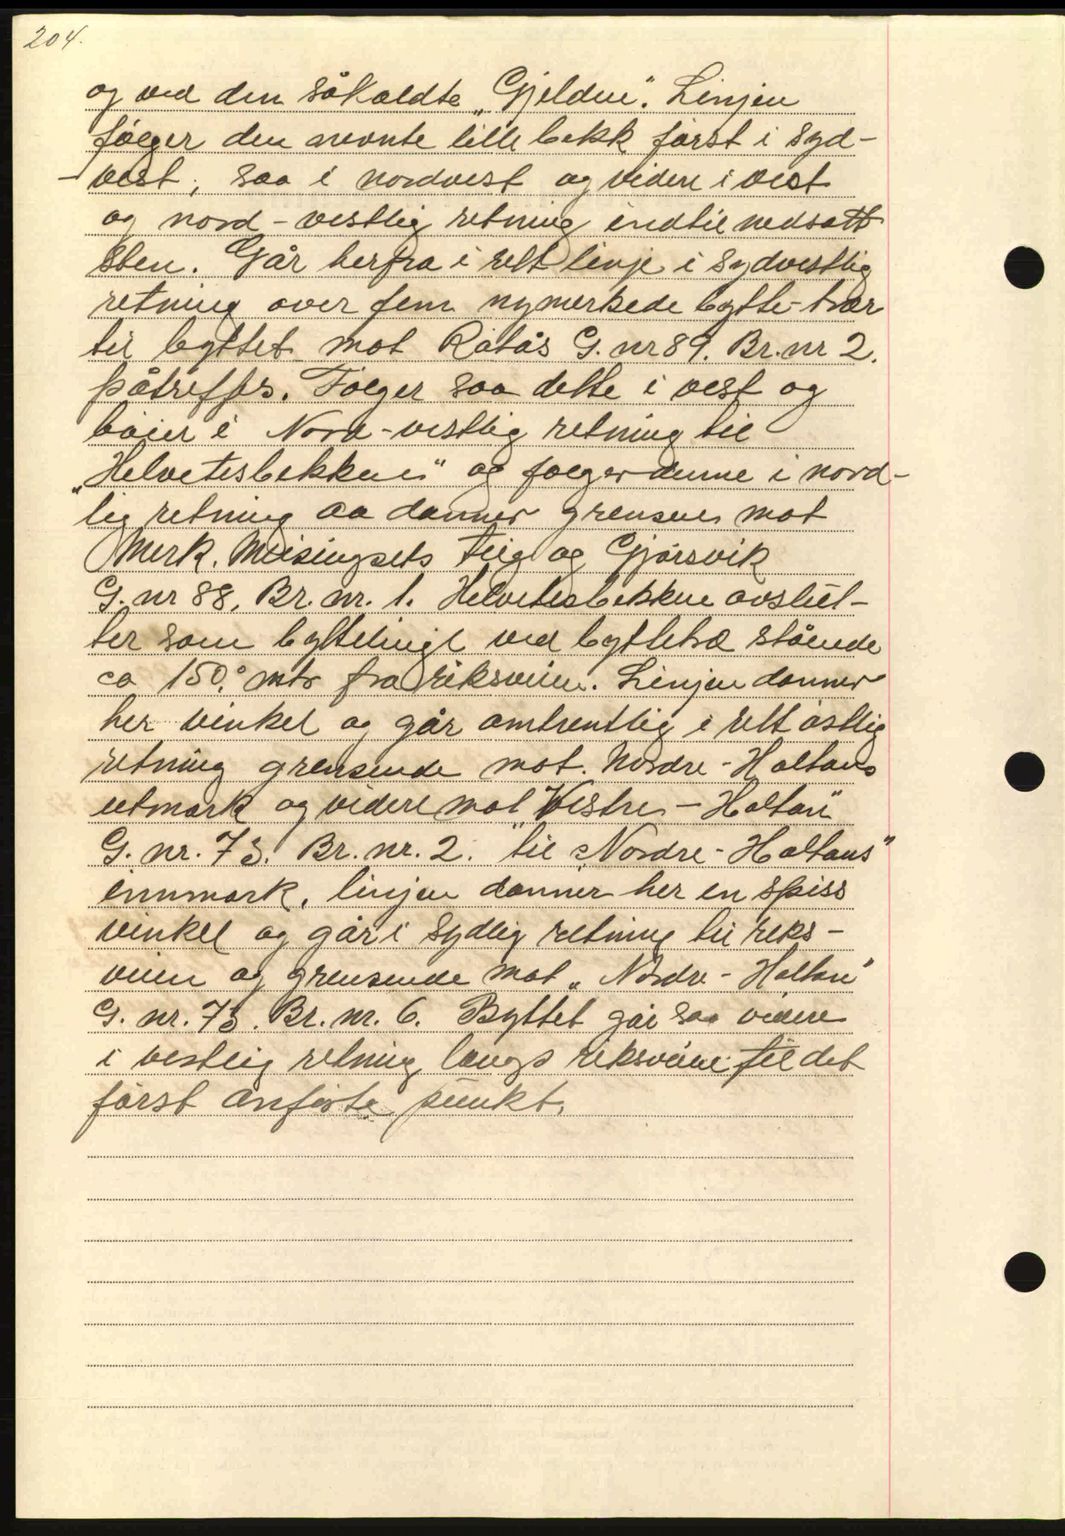 204.
og ved den såkaldte „Gjelden“. Linjen
følger den nevnte lille bekk først i syd-
vest, saa i nordvest og videre i vest
og nord-vestlig retning indtil nedsatt
sten. Går herfra i rett linje i sydvestlig
retning over fem nymerkede bytte-trær
til byttet mot Råtås G.nr 89. Br.nr 2.
påtreffes. Følger saa dette i vest og
bøier i Nord-vestlig retning til
„Helvetesbekken“ og følger denne i nord-
lig retning aa danner grensen mot
Merk. Meisingsets teig og Gjørsvik
G.nr 88, Br.nr. 1. Helvetesbekken avslut-
ter som byttelinje ved byttetræ stående
ca 150,° mtr fra riksveien. Linjen danner
her vinkel og går omtrentlig i rett østlig
retning grensende mot Nordre-Holtans
utmark og videre mot Vestre-Holtan"
G. nr. 73. Br.nr. 2. til „Nordre-Holtans"
innmark, linjen danner her en spiss
vinkel og går i sydlig retning til riks-
veien og grensende mot „Nordre-Holtan"
G. nr. 73. Br.nr. 6. Byttet går saa videre
i vestlig retning langs riksveien til det
først anførte punkt.